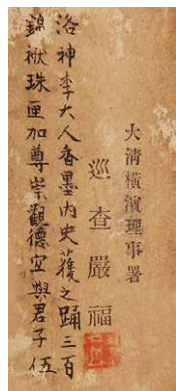 大清橫濱理事署
巡查嚴福
洛神李大人香墨內史獲之踊三百
錦袱珠匣加尊崇觀德宜與君子伍